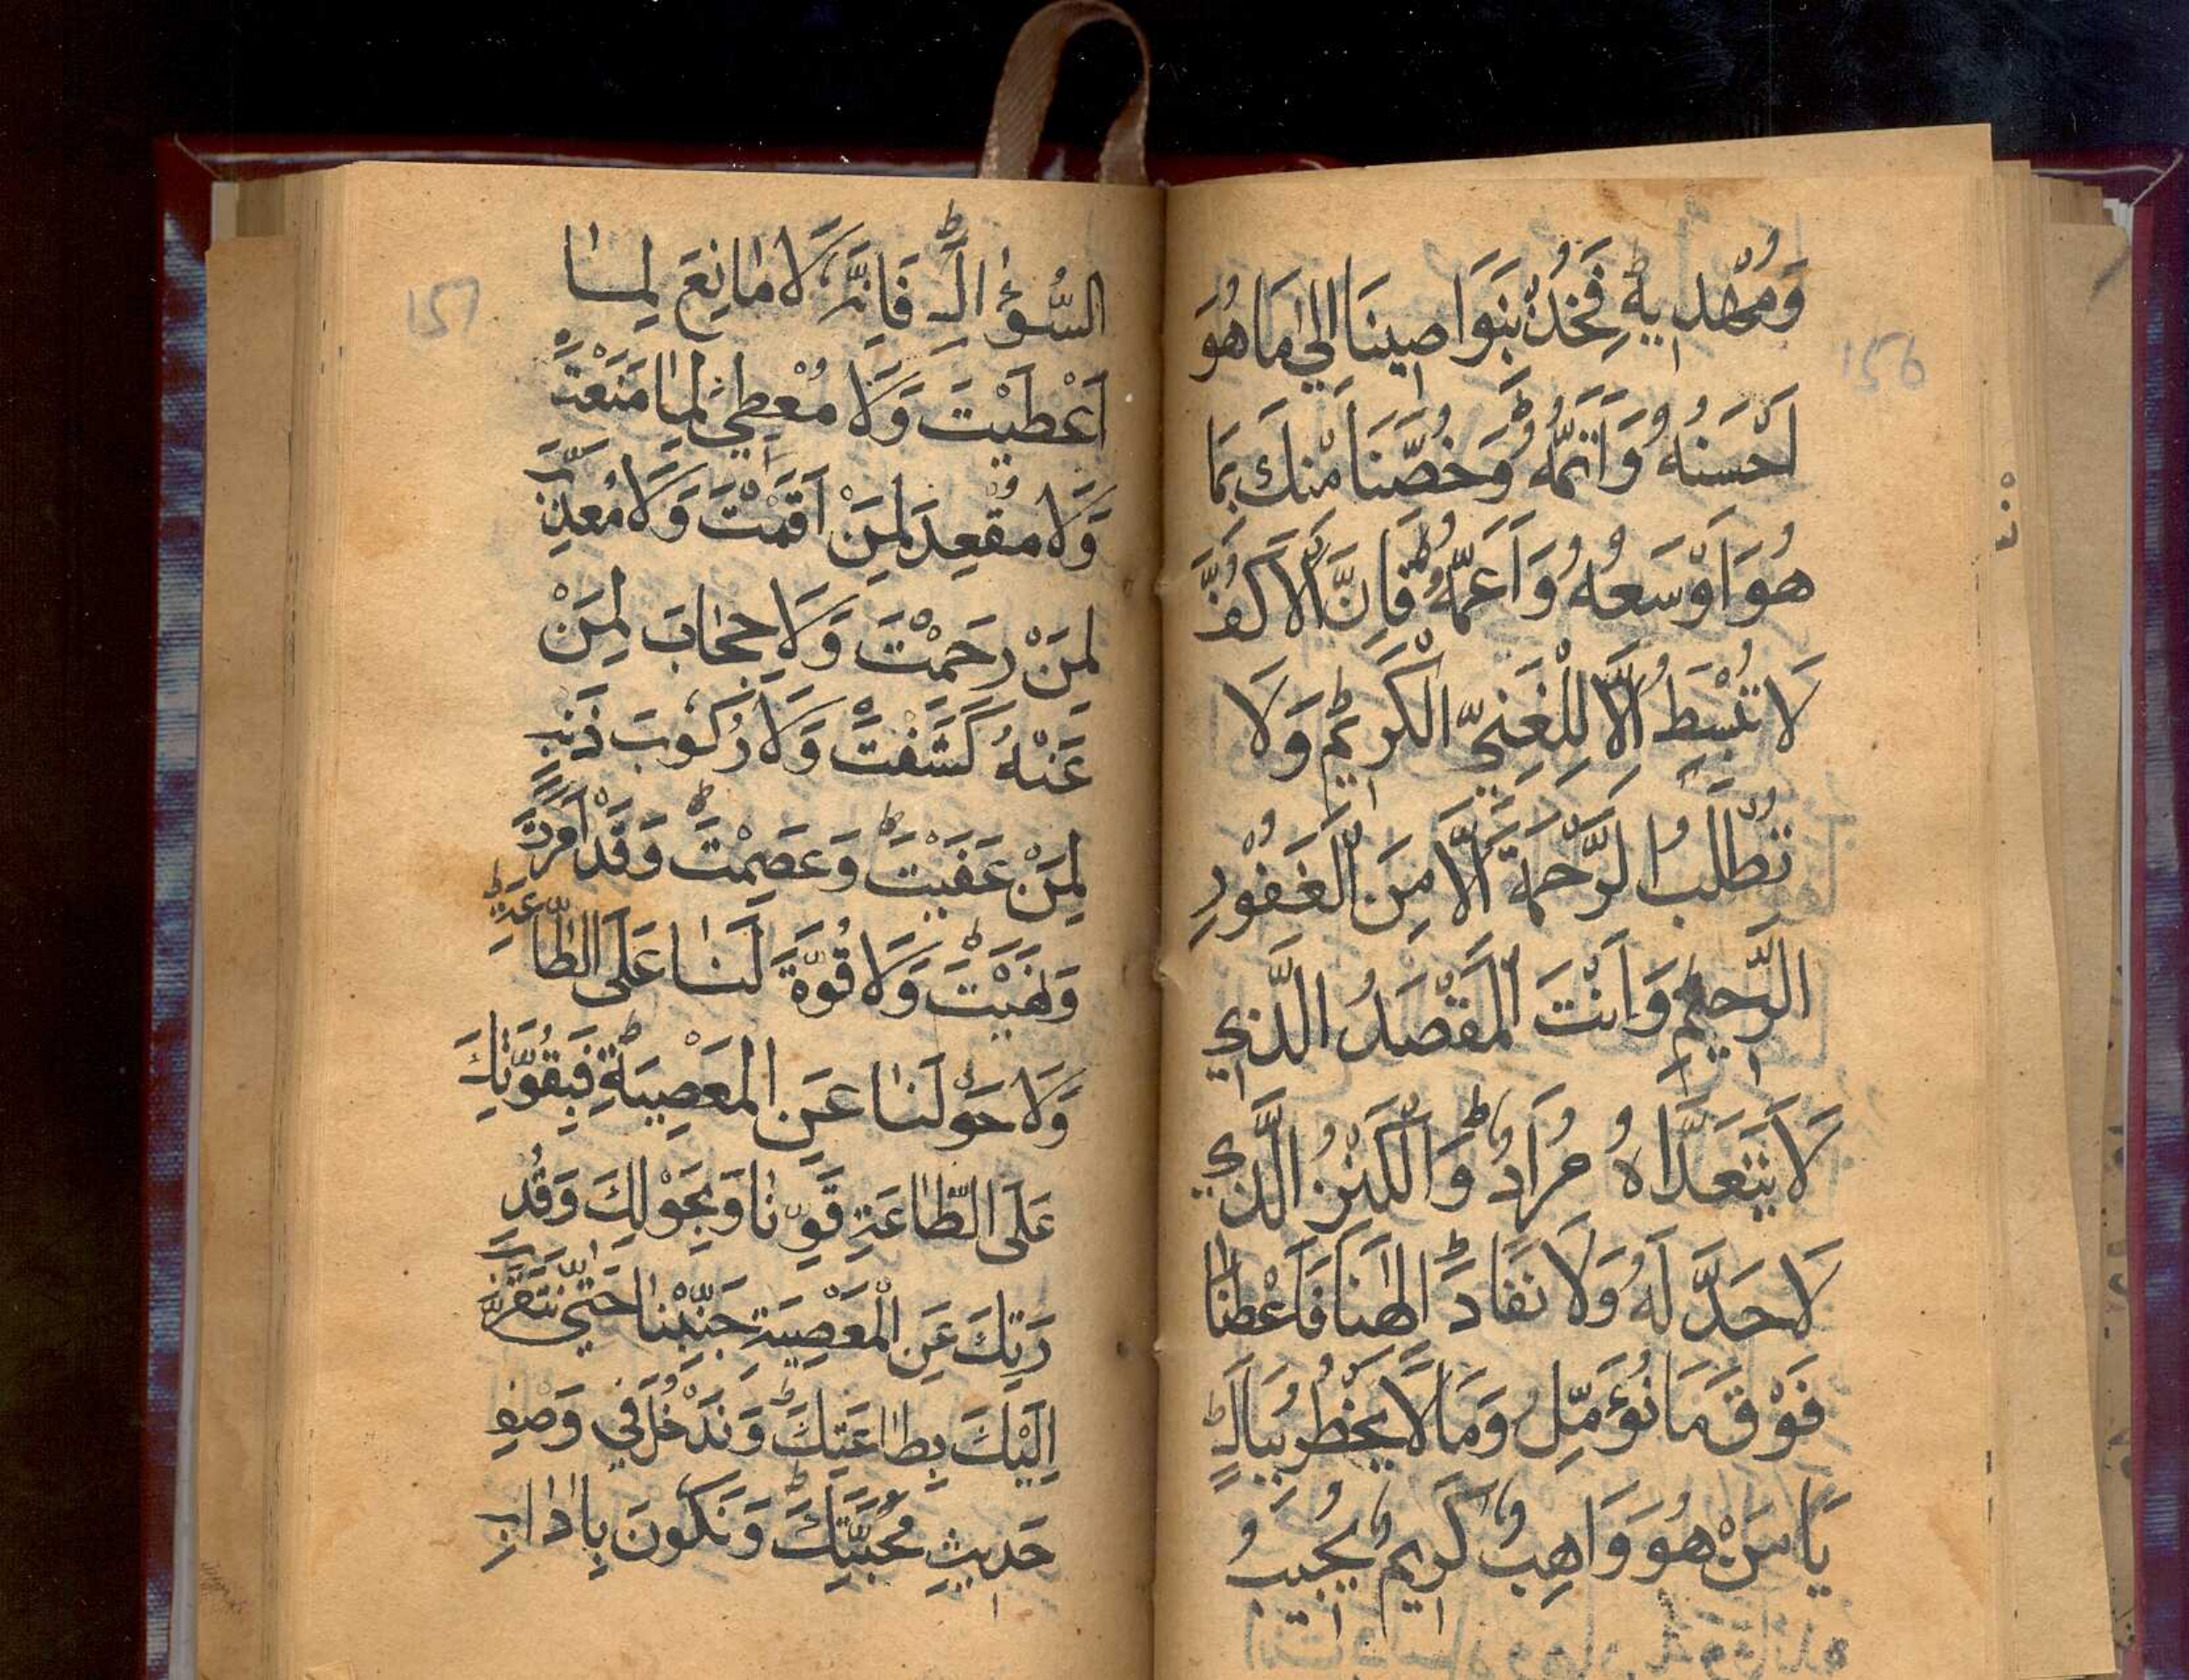 156
وَمُهْدِيهِ فَخُذْ بِنَوَاصِينَا اِلٰي مَا هُوَ
اَحْسَنُهُ وَاَتَمُّهُ وَخُصَّنَا مِنْكَ بِمَا
هُوَ اَوْسَعُهُ وَاَعَمُّهُ فَاِنَّ الْاَكُفَّ
لَا تُبْسَطُ اِلَّا لِلْغَنِيِّ الْكَرِيْمِ وَلَا
تُطْلَبُ الرَّحْمَةُ اِلَّا مِنَ الْغَفُوْرِ
الرَّحِيْمِ وَاَنْتَ الْمَقْصَدُ الَّذِي
لَا يَتَعَدَّاهُ مُرَادٌ وَالْكَنْزُ الَّذِي
لَا حَدَّ لَهُ وَلَا نَفَادَ اِلٰهَنَا فَاَعْطِنَا
فَوْقَ مَا نُؤَمِّلُ وَمَا لَا يَخْطُرُ بِبَالٍ
يَا مَنْ هُوَ وَاهِبٌ كَرِيمٌ مُجِيبُ
157
السُّؤَالِ فَاِنَّهُ لَا مَانِعَ لِمَا
اَعْطَيْتَ وَلَا مُعْطِيَ لِمَا مَنَعْتَ
وَلَا مُقْعِدَ لِمَنْ اَقَمْتَ وَلَا مُعَذِّبَ
لِمَنْ رَحَمْتَ وَلَا حِجَابَ لِمَنْ
عَنْهُ كَشَفْتَ وَلَا رُكُوبَ ذَنْبٍ
لِمَنْ عَفَيْتَ وَعَصِمْتَ وَقَدْ اَمَرْتَ
وَنَهَيْتَ وَلَا قُوَّةَ لَنَا عَلَي الطَّاعَةِ
وَلَا حَوْلَنَا عَنِ الْمَعْصِيَةِ فَبِقُوَّتِكَ
عَلَي الطَّاعَةِ قَوِّنَا وَبِحَوْلِكَ وَقُدْ
رَتِكَ عَنِ الْمَعْصِيَةِ جَنِّبْنَا حَتّٰي نَتَقَرَّبَ
اِلَيْكَ بِطَاعَتِكَ وَنَدْخُلَ فِي وَصْفِ
حَدِيثِ مُحَبَّتِكَ وَنَكُونَ بِاٰدَابِ